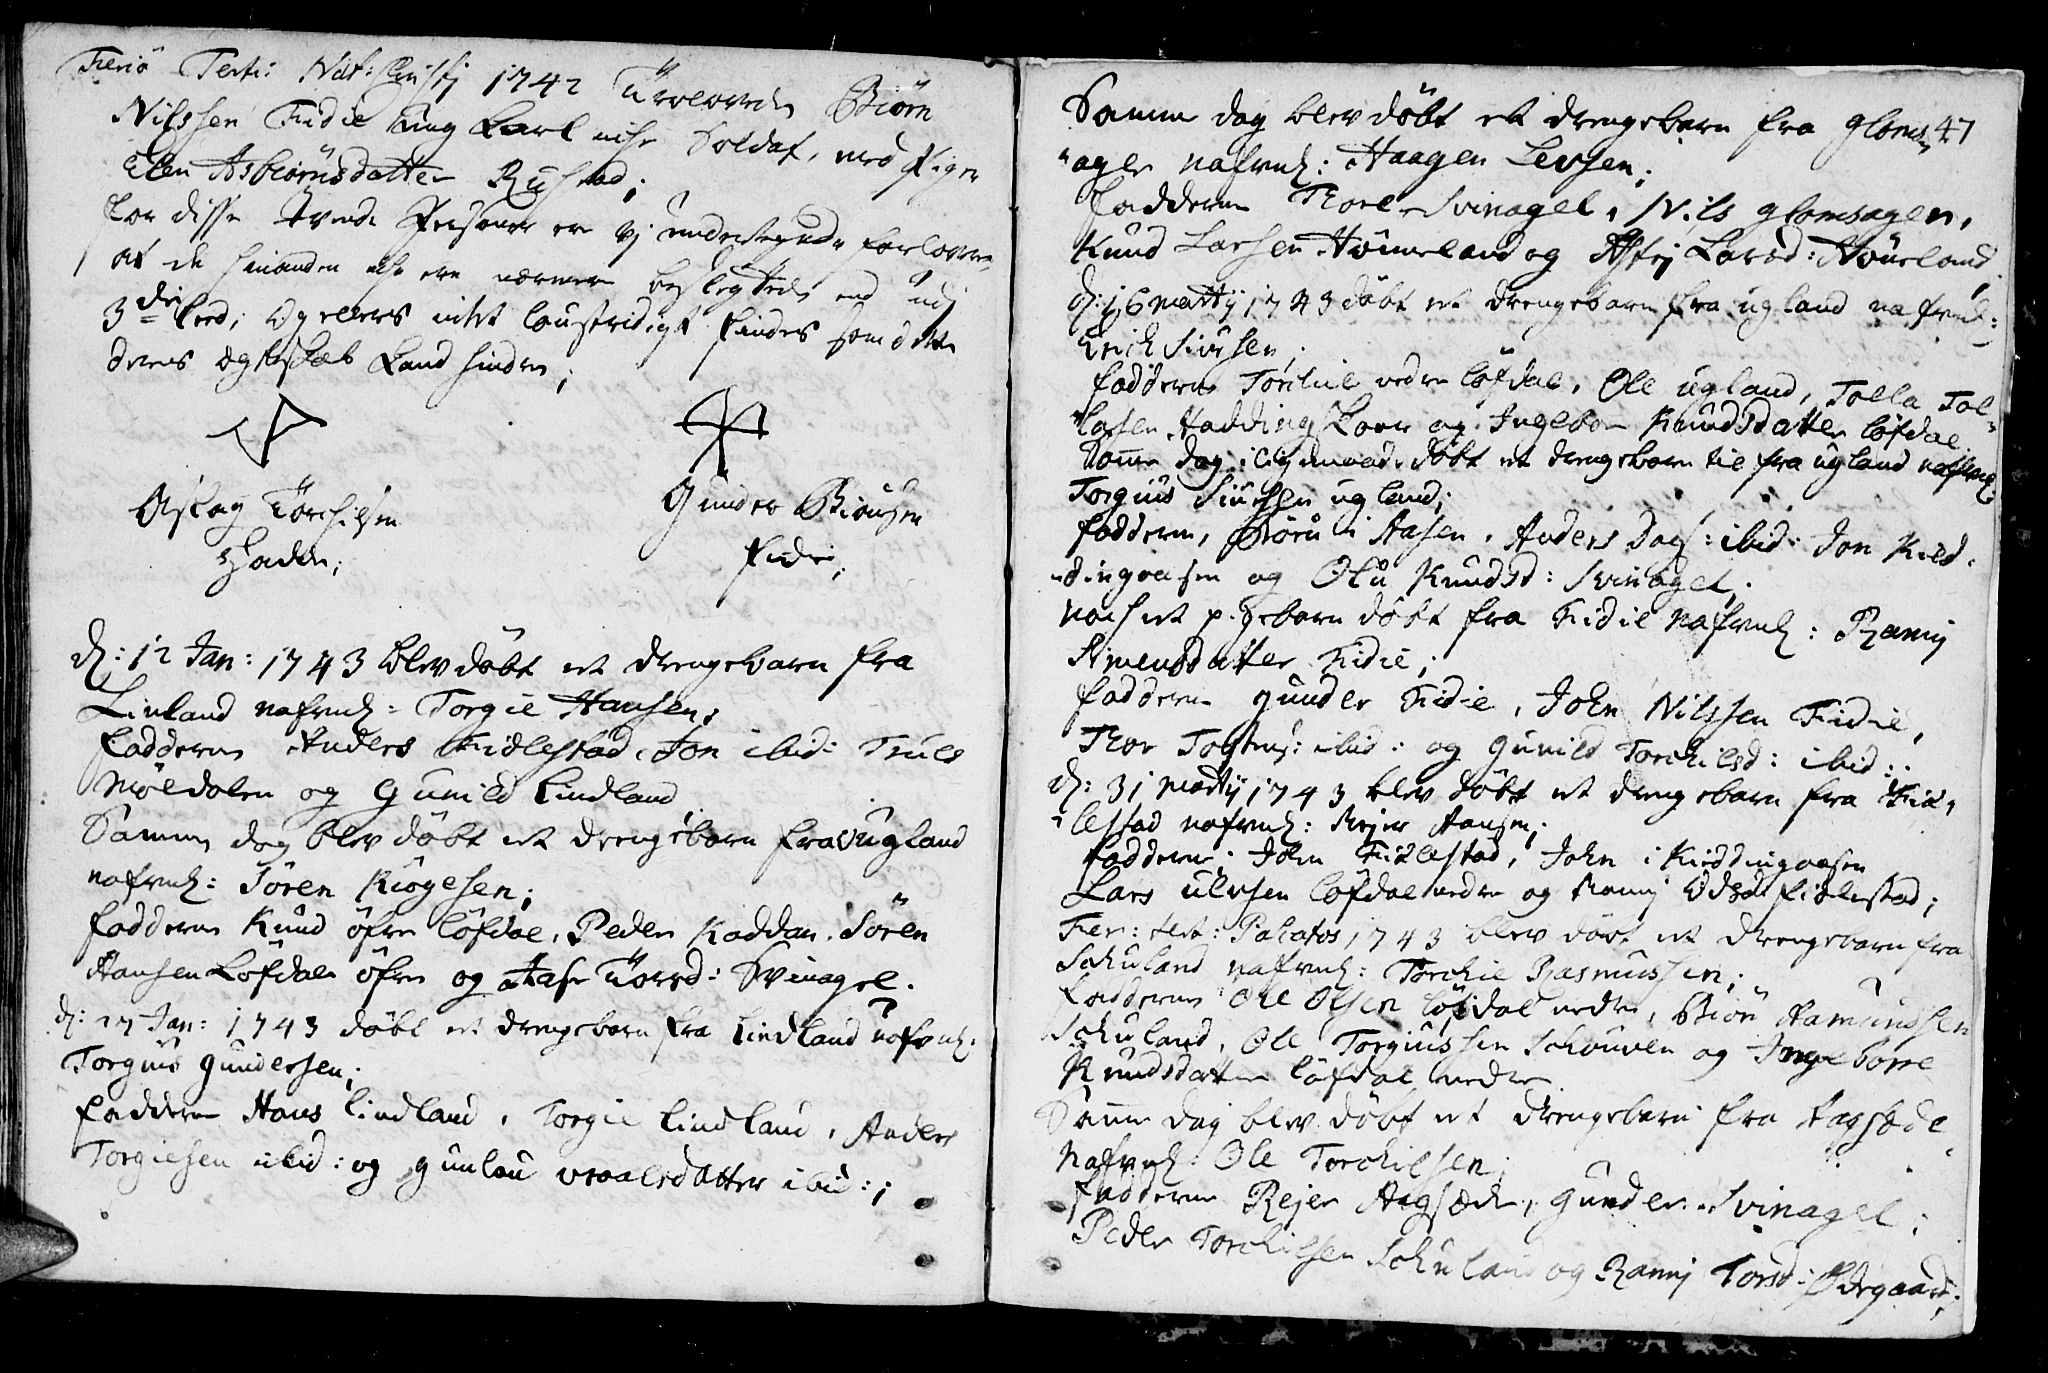 Feriâ Terti: Nat: Christj 1742 Trolovede Biørn
Nilssen Fidie ung Karl icke Soldat, med Pigen
Elen Asbiørnsdatter Rustad;
For disse tvende Personer er vj underskrevne forlovere
at de hinanden icke ere nærmere beslegtede end udj
3die leed; og ellers intet lougstridigt findes som dette
deres egteskab kand hindre;
Aslag Torchilsen
Hadde;
Gunder Biønsen
Fidie;
d: 12 Jan: 1743 blev döbt et drengebarn fra
Linland nafnl: Torgie Hansen;
Faddere Anders Fidlestad, Jon ibid: Truls
Möldalen og Gunild Lindland
Samme dag blev döbt et drengebarn fra Ugland
nafnl: Sören Kiögesen;
Faddere Knud öfre Löfdal, Peder Kaddan, Sören
Hansen Löfdal öfre og Aase Torsd: Svinagel.
d: 27 Jan: 1743 döbt et drengebarn fra Lindland nafnl:
Torgius Gundersen;
Faddere Hans Lindland, Torgie Lindland, Anders
Torgiesen ibid: og Gunlau Vraalsdatter ibid:;
47
Samme dag blev döbt et drengebarn fra Gloms
ager nafnl: Haagen Levsen;
Faddere Thore Svinagel, Nils Glomsagen,
Knud Larsen Hönneland og Astrj Larsd: Höneland;
d: 16 Martij 1743 döbt et drengebarn fra Ugland nafnl:
Erich Sivrsen;
Faddere Torchil nedre Löfdal, Ole Ugland, Tolla Tol-
lofsen Haddingskoer og Ingebor Knudsdatter Löfdal.
Samme dag iligemaade döbt et drengebarn til fra Ugland nafnl:
Torgius Siurssen Ugland;
Faddere, Biörn i Aasen, Anders Dags: ibid: Jon Kied-
dingaasen og Olu Knudsd: Svinagel;
noch et pigebarn döbt fra Fidie nafnl: Rannj
Simensdatter Fidie;
Faddere Gunder Fidie, John Nilssen Fidie,
Thor Tostens: ibid: og Gunild Torchilsd: ibid:.
d: 31 Martij 1743 blev döbt et drengebarn fra Fid-
lestad nafnl: Rejer Hansen;
Faddere: John Fidlestad, John i Kieddingaasen
Lars Ulvsen Löfdal nedre og Rannj Fidlestad;
Fer: tert: Pascatos 1743 blev döbt et drengebarn fra
Schuland nafnl: Torchil Rasmussen;
Faddere Ole Olsen Löfdal nedre, Biön Hamundsen
Schuland, Ole Torgiussen Schouven og Ingeborre
Knudsdatter Löfdal nedre
Samme dag blev döbt et drengebarn fra Hagsæde
Nafnl: Ole Torchilsen;
Faddere Rejer Hagsæde, Gunder Svinagel,
Peder Torchilsen Schuland og Rannj Torsd: Ödegaard;